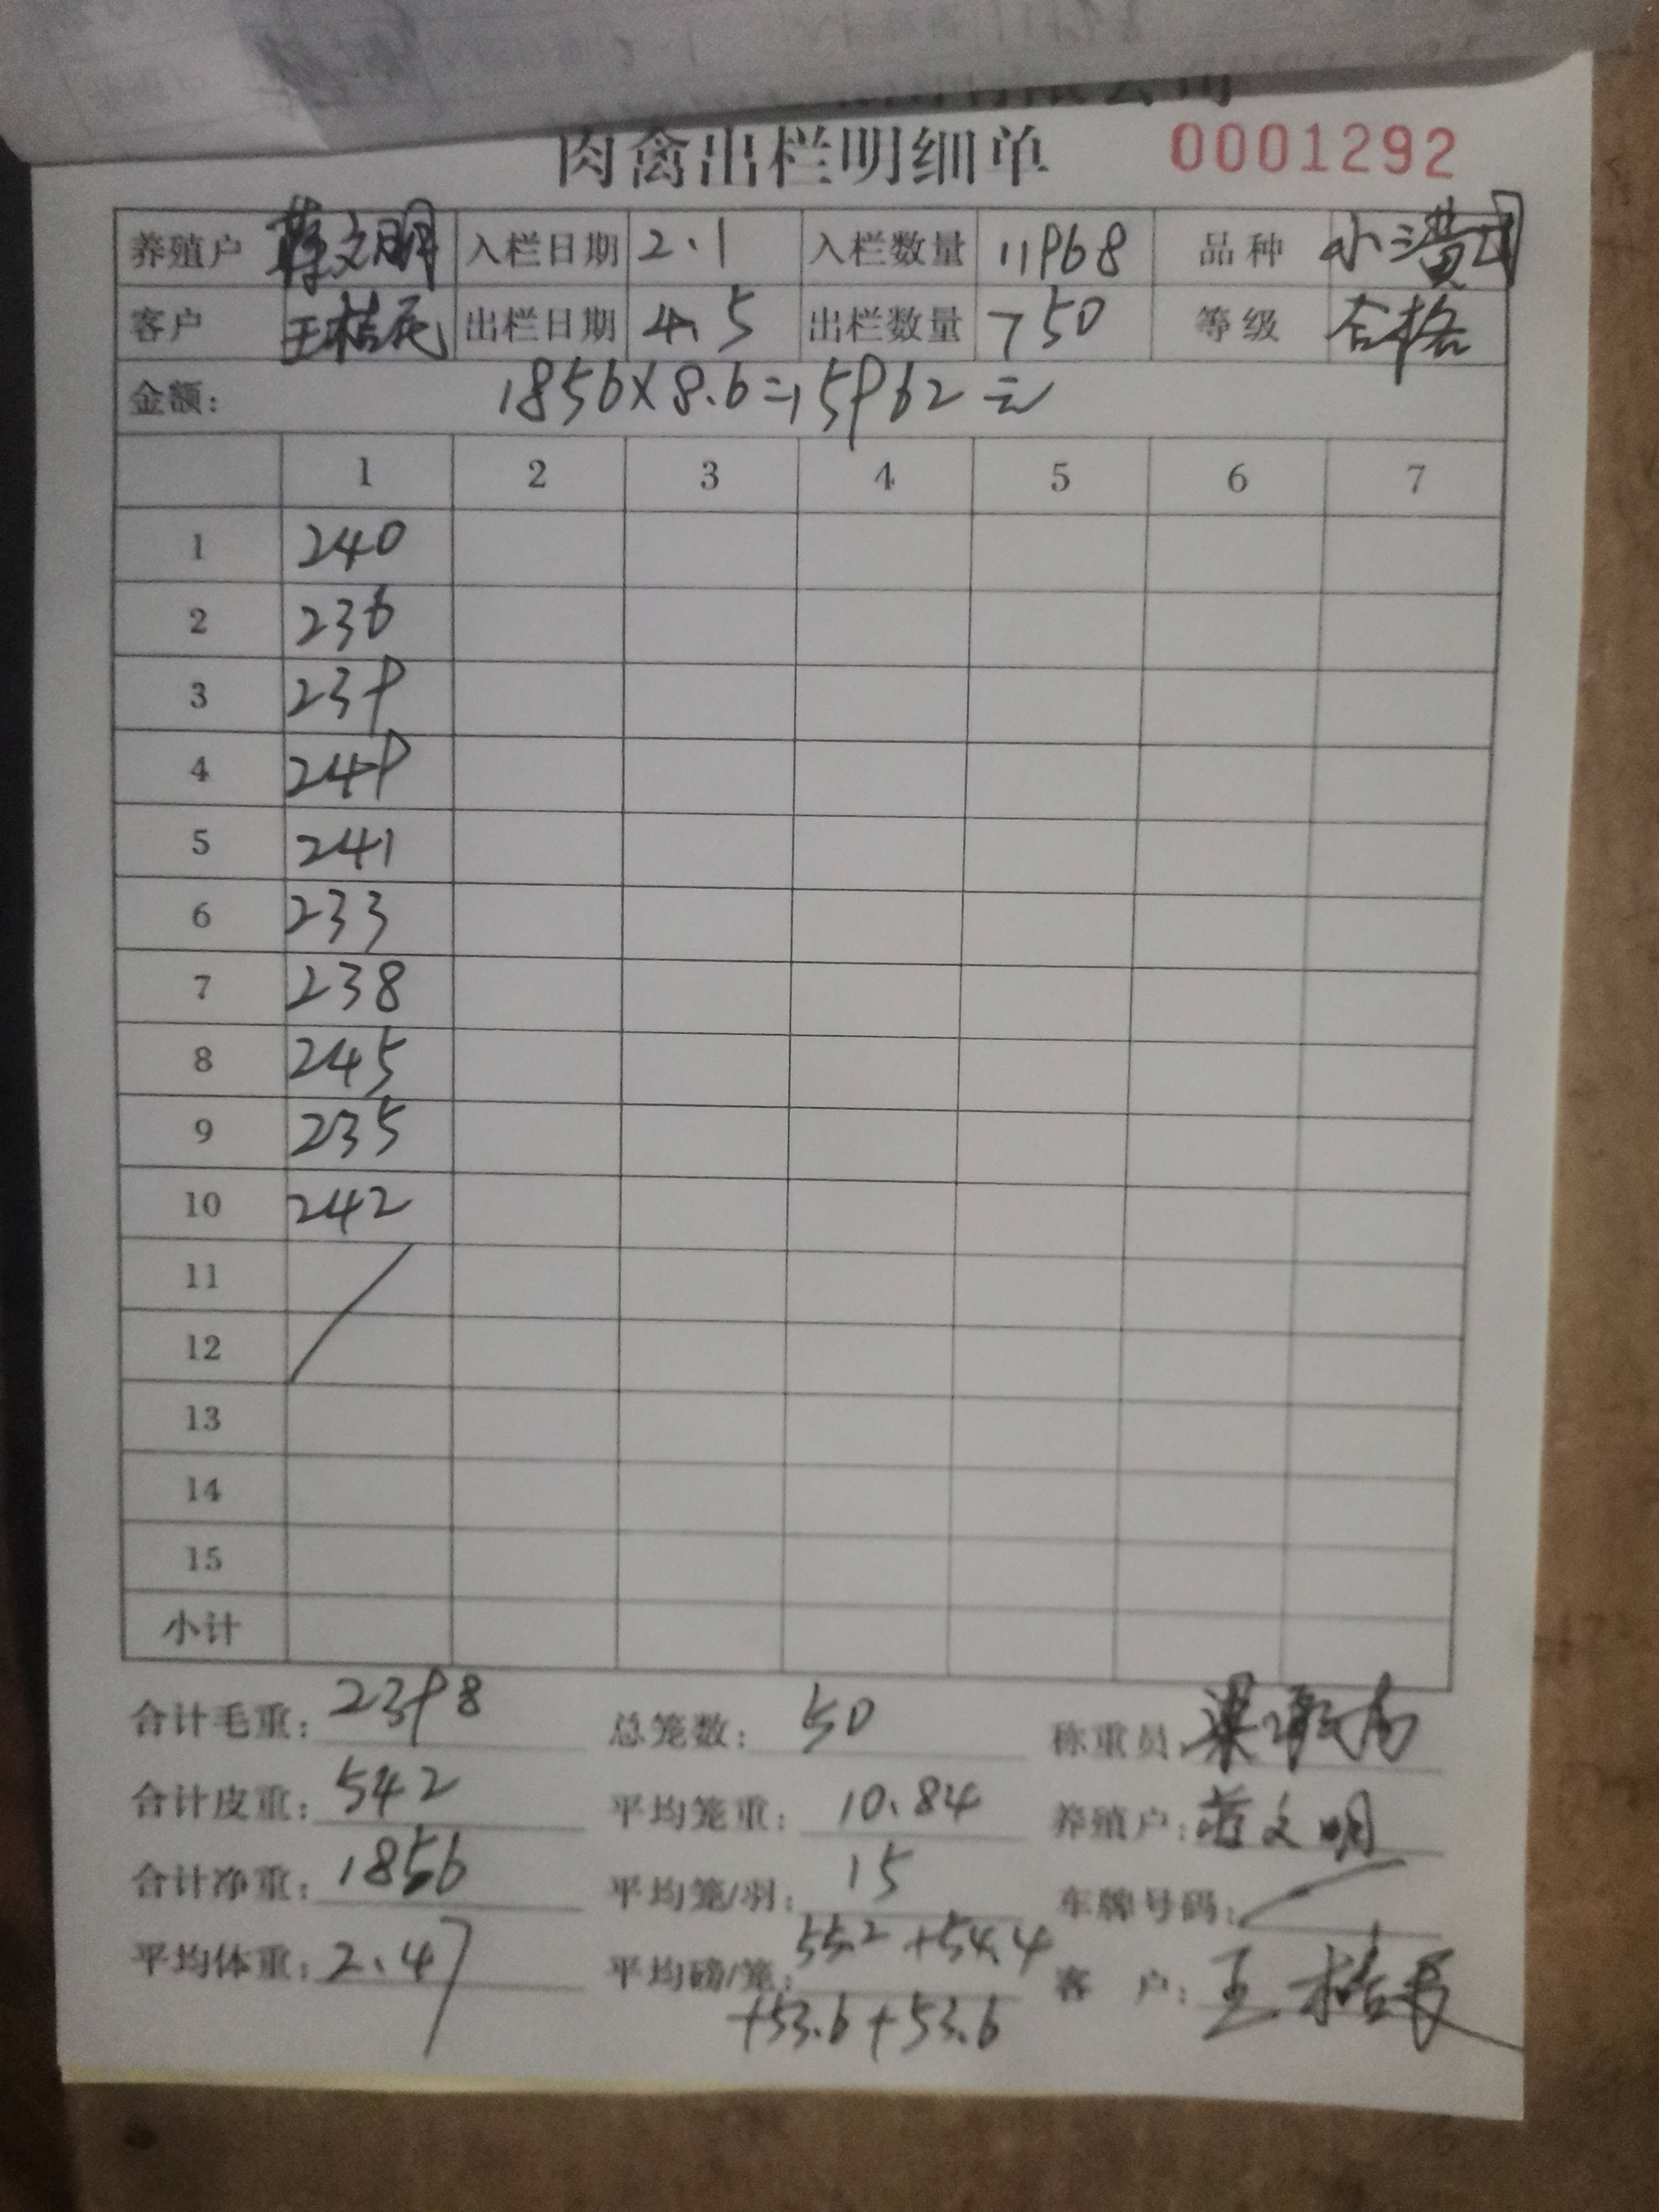 肉禽出栏明细单 0001292
养殖户 蒋文明 入栏日期 2.1 入栏数量 11968 品种 小黄
客户 王桂 出栏日期 4.5 出栏数量 750 等级 合格
金额: 1856×8.6=15962元
1 2 3 4 5 6 7
1 240
2 236
3 239
4 249
5 241
6 233
7 238
8 245
9 235
10 242
11
12
13
14
15
小计
合计毛重: 2398 总笼数: 50 称重员: 梁
合计皮重: 542 平均笼重: 10.84 养殖户: 蒋文明
合计净重: 1856 平均笼/羽: 15 车牌号码:
平均体重: 2.47 平均磅/笼: 55.2+54.4 客 户: 王桂
+53.6+53.6